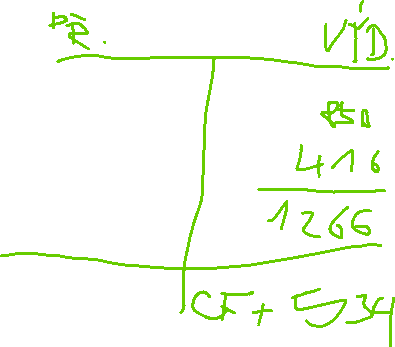 PŘ. VÝD.
850
416
1266
CF + 534